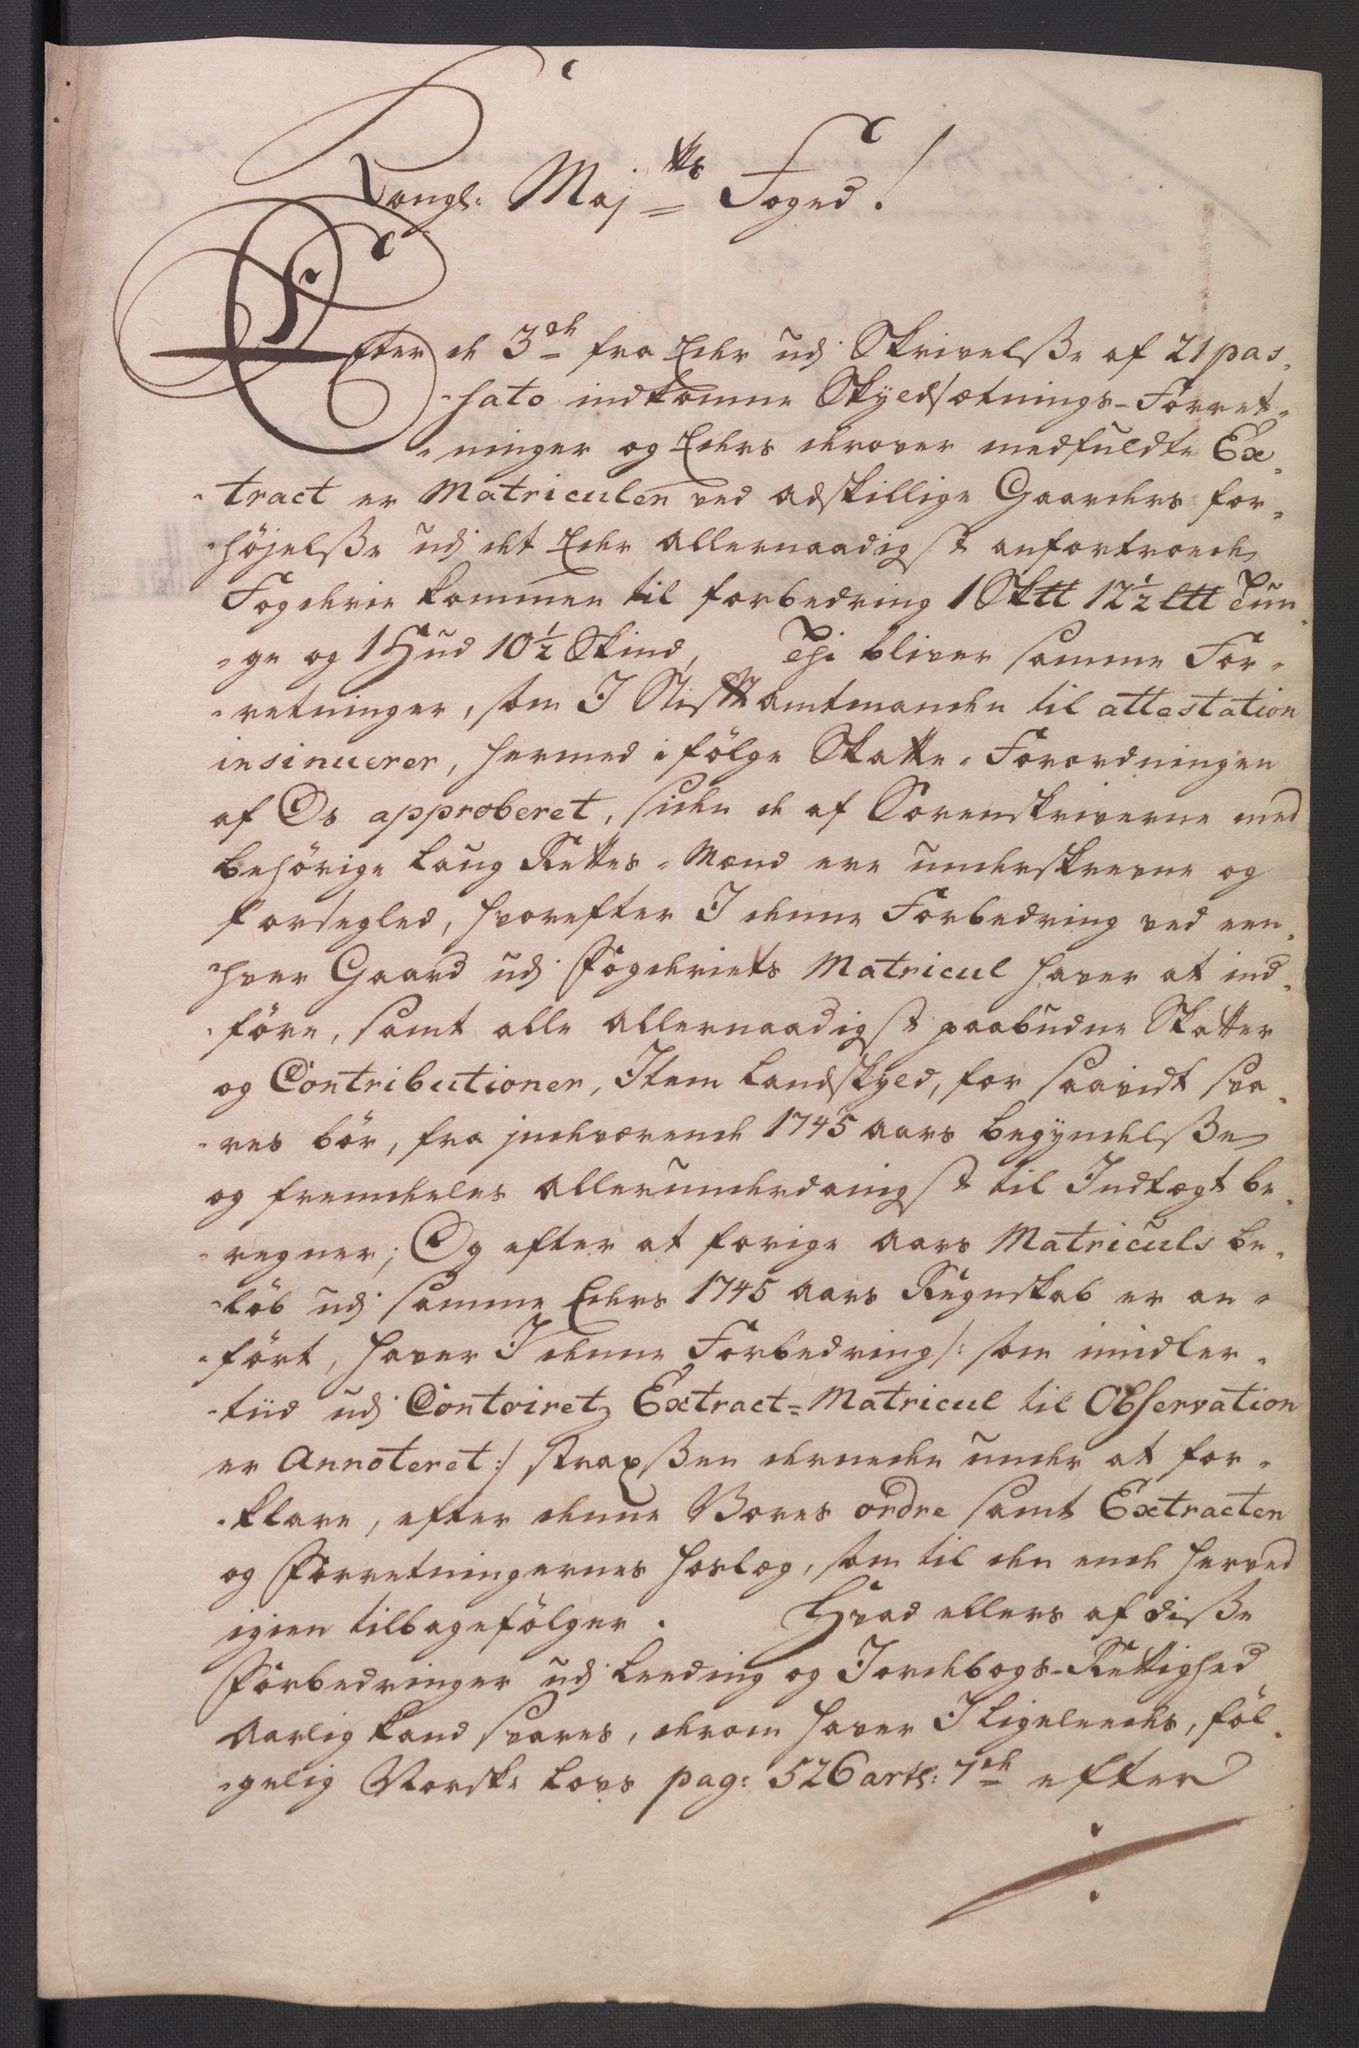 Kongl: Maj<sup>tts</sup> Foged!
Efter de 3<sup>de</sup> fra Eder udj Skrivelsse af 21 pas-
-sato indkomne Skyldsætnings-Forret-
-ninger og Eders derover medfuldte Ex-
-tract er Matriculen ved adskillige Gaarders for-
-høyelsse udj det Eder allernaadigst anfortroede
Fogderie kommen til forbedring 1 Sktt 12½ Ltt Tun-
-ge og 1 Hud 10½ Skind, Thi bliver samme For-
-retninger, som I Stiftamtmanden til attestation
insinuerer, hermed i følge Skatte-Forordningen
af Os approberet, siden de af Sorenskriverne med
behörige Laug Rettes-Mænd ere underskrevne og
forseglede, hvorefter I denne Forbedring ved een-
-hver Gaard udj Fogderiets Matricul haver at ind-
-føre, samt alle allernaadigst paabudne Skatter
og Contributioner, Item Landskyld, for saavidt sva-
-res bör, fra indeværende 1745 Aars Begyndelsse
og fremdeles allerunderdanigst til Indtægt be-
-regner; Og efter at forige Aars Matriculs be-
-løb udj samme Eders 1745 Aars Regnskab er an-
-ført, haver I denne Forbedring /: som imidler-
-tiid udj Contoiretz Extract-Matricul til Observation
er Annoteret :/ straxssen derneden under at for-
-klare, efter denne Vores ordre samt Extracten
og Forretningernes hoslæg, som til den ende herved
igien tilbagefölger. Hvad ellers af disse
Forbedringer udj Leeding og Jordebogs-Rettighed
Aarlig kand svares, derom haver I ligeleedes, föl-
-gelig Norske Lovs pag: 526 artl: 7<sup>de</sup> efter